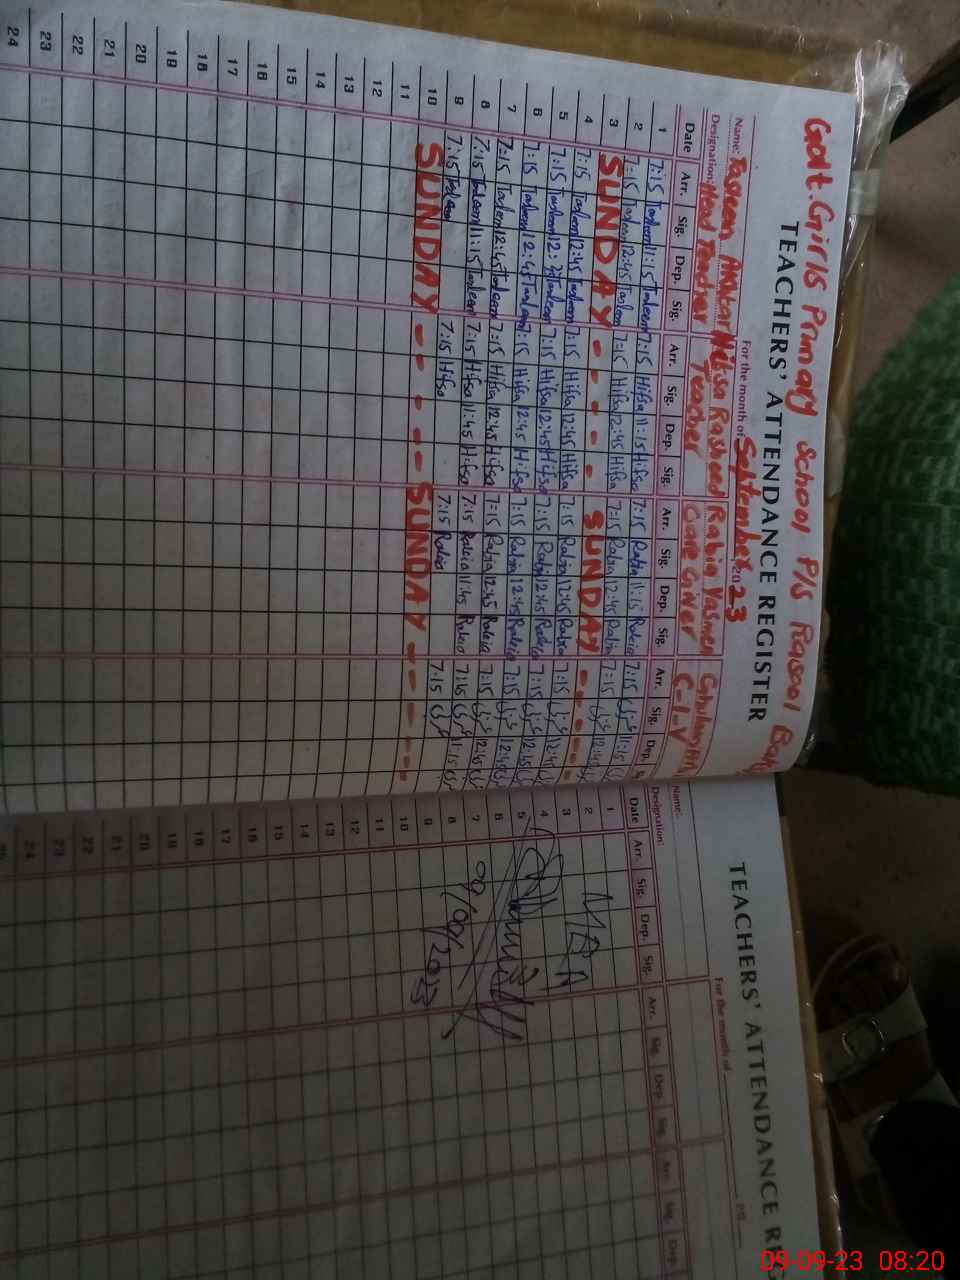 Govt. Girls Primary School P/s Rasool
TEACHERS' ATTENDANCE REGISTER
For the month of September 2023
Name: Tasleem Akhtar Hifsa Rasheed Rabia Yasmen
Designation: Head Teacher Teacher Care Giver C-I-V
Date Arr. Sig. Dep. Sig. Arr. Sig. Dep. Sig. Arr. Sig. Dep. Sig. Arr. Sig. Dep.
1 7:15 Tasleem 11:15 Tasleem 7:15 Hifsa 11:15 Hifsa 7:15 Rabia 11:15 Rabia 7:15 11:15
2 7:15 Tasleem 12:45 Tasleem 7:15 Hifsa 12:45 Hifsa 7:15 Rabia 12:45 Rabia 7:15 12:45
3 SUNDAY - - - - - SUNDAY - - - - -
4 7:15 Tasleem 12:45 Tasleem 7:15 Hifsa 12:45 Hifsa 7:15 Rabia 12:45 Rabia 7:15
5 7:15 Tasleem Tasleem 7:15 Hifsa 12:45 Hifsa 7:15 Rabia 12:45 Rabia 7:15 12:45
6 7:15 Tasleem 12:45 Tasleem 7:15 Hifsa 12:45 Hifsa 7:15 Rabia 12:45 Rabia 7:15 12:45
7 7:15 Tasleem 12:45 Tasleem 7:15 Hifsa 12:45 Hifsa 7:15 Rabia 12:45 Rabia 7:15 12:45
8 7:15 Tasleem 11:15 Tasleem 7:15 Hifsa 11:45 Hifsa 7:15 Rabia 11:45 Rabia 7:15 11:15
9 7:15 Tasleem 7:15 Hifsa 7:15 Rabia 7:15
10 SUNDAY - - - - SUNDAY - - - - -
11
12
13
14
15
16
17
18
19
20
21
22
23
24
TEACHERS' ATTENDANCE R
For the month of 20
Name:
Designation:
Date Arr. Sig. Dep. Sig. Arr. Sig. Dep. Sig. Arr. Sig. Dep.
1
2
3
4
5
6
7
8
9
10
11
12
13
14
15
16
17
18
19
20
21
22
23
24
MEA
09/09/2023
09-09-23 08:20